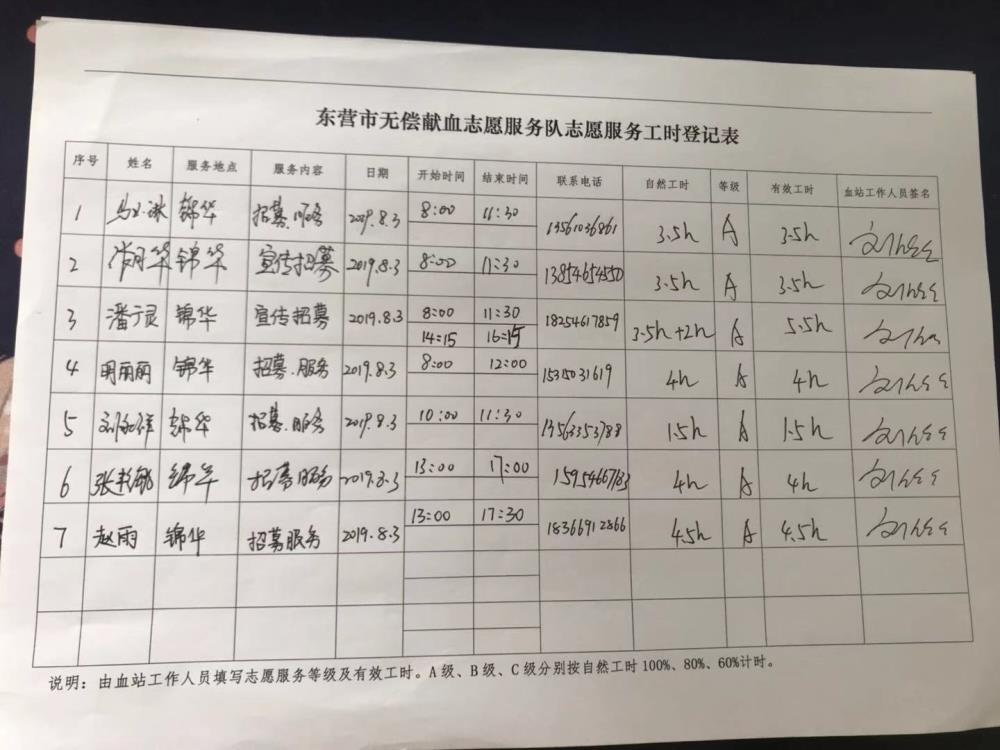 东营市无偿献血志愿服务队志愿服务工时登记表
序号 姓名 服务地点 服务内容 日期 开始时间 结束时间 联系电话 自然工时 等级 有效工时 血站工作人员签名
1 马小冰 锦华 招募.服务 2019.8.3 8:00 11:30 13561036861 3.5h A 3.5h
2 锦华 宣传招募 2019.8.3 8:00 11:30 13854654550 3.5h A 3.5h
3 潘于灵 锦华 宣传招募 2019.8.3 8:00 11:30 18254617859 3.5h+2h A 5.5h
14:15 16:15
4 明丽丽 锦华 招募.服务 2019.8.3 8:00 12:00 15315031619 4h A 4h
5 锦华 招募.服务 2019.8.3 10:00 11:30 13563353788 1.5h A 1.5h
6 张艳敏 锦华 招募服务 2019.8.3 13:00 17:00 15954667183 4h A 4h
7 赵雨 锦华 招募服务 2019.8.3 13:00 17:30 18366912866 4.5h A 4.5h
说明：由血站工作人员填写志愿服务等级及有效工时。A级、B级、C级分别按自然工时100%、80%、60%计时。